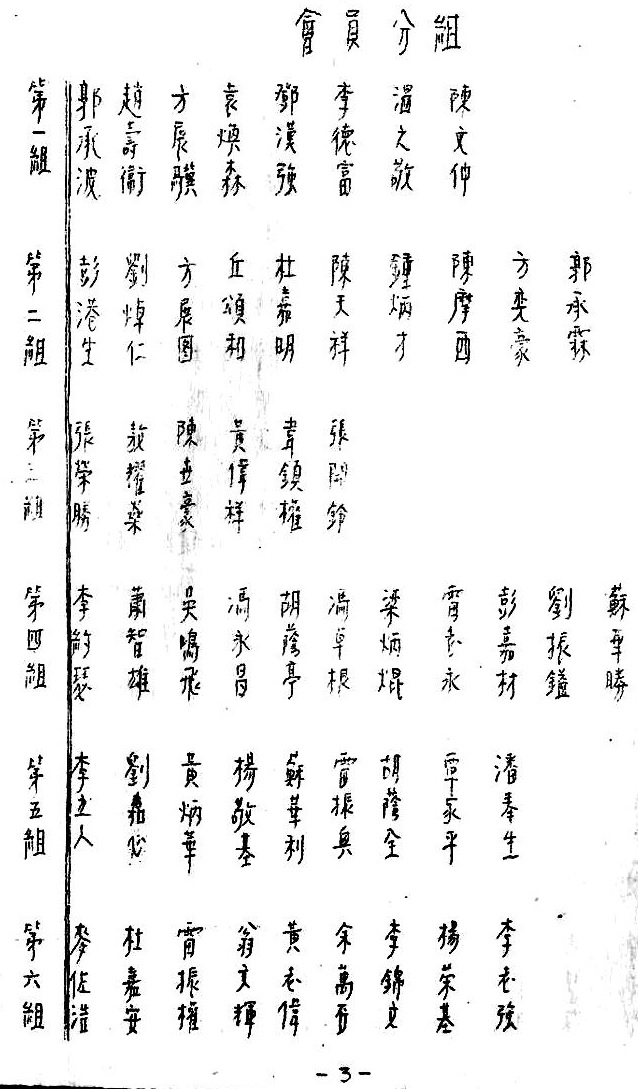 會員分組
第一組
郭承波
趙壽衛
方展驥
袁煥森
鄧漢強
李德富
溫之敬
陳文仲
第二組
彭港生
劉焯仁
方展圖
丘頌和
杜嘉明
陳天祥
鍾炳才
陳摩西
方奕豪
郭承霖
第三組
張榮勝
敖耀燊
陳世豪
黃偉祥
韋鎮權
張開鈴
第四組
李敏瑟
蕭智雄
吳鳴飛
馮永昌
胡蔭亭
馮卓根
梁炳焜
雷志永
彭嘉材
劉振鎰
蘇華勝
第五組
李立人
劉嘉
黃炳華
楊敬基
蘇華利
雷振興
胡蔭全
覃家平
潘奉生
第六組
麥佐浩
杜嘉安
雷振權
翁文輝
黃志偉
余萬
李錦文
楊榮基
李志強
-3-